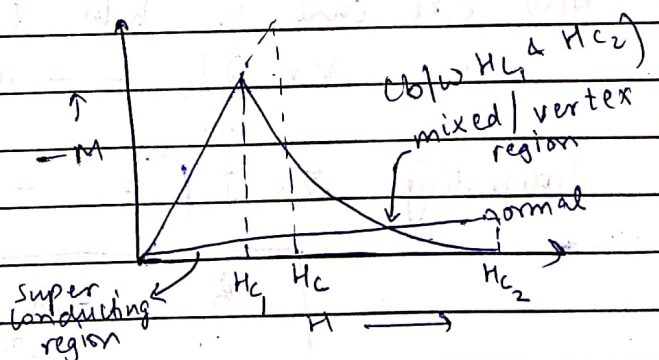 (b/w Hc1 & Hc2)
mixed / vertex
region
↑
- M
normal
super
conducting
region
Hc1
Hc
Hc2
H →